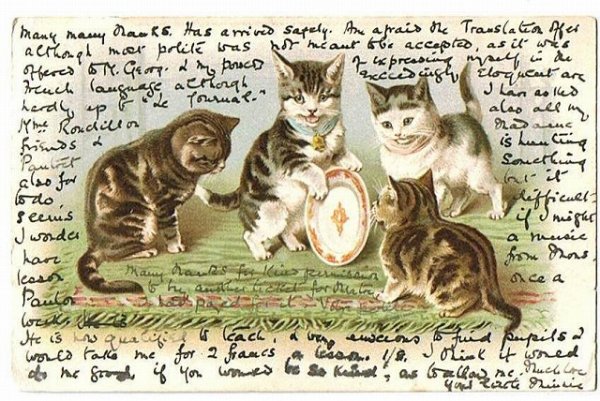 Many many thanks. Has arrived safely. Am afraid the Translation Offer
although most polite was not meant to be accepted, as it was
offered to M. Georg. & my powers of expressing myself in the
French language although exceedingly eloquent are
hardly up to "Le Journal." I have asked
Mme Rondillon also all my
friends & Madame
is hunting
also for Something
to do but it
seems difficult
I wonder if I might
have a music
lesson from Mons.
once a
week.
Many thanks for kind permission
to buy another ticket for
He is now qualified to teach, & very anxious to find pupils &
would take me for 2 francs a lesson. 1/8. I think it would
do me good, if you would be so kind, as to allow me. Much love
Your little Minnie